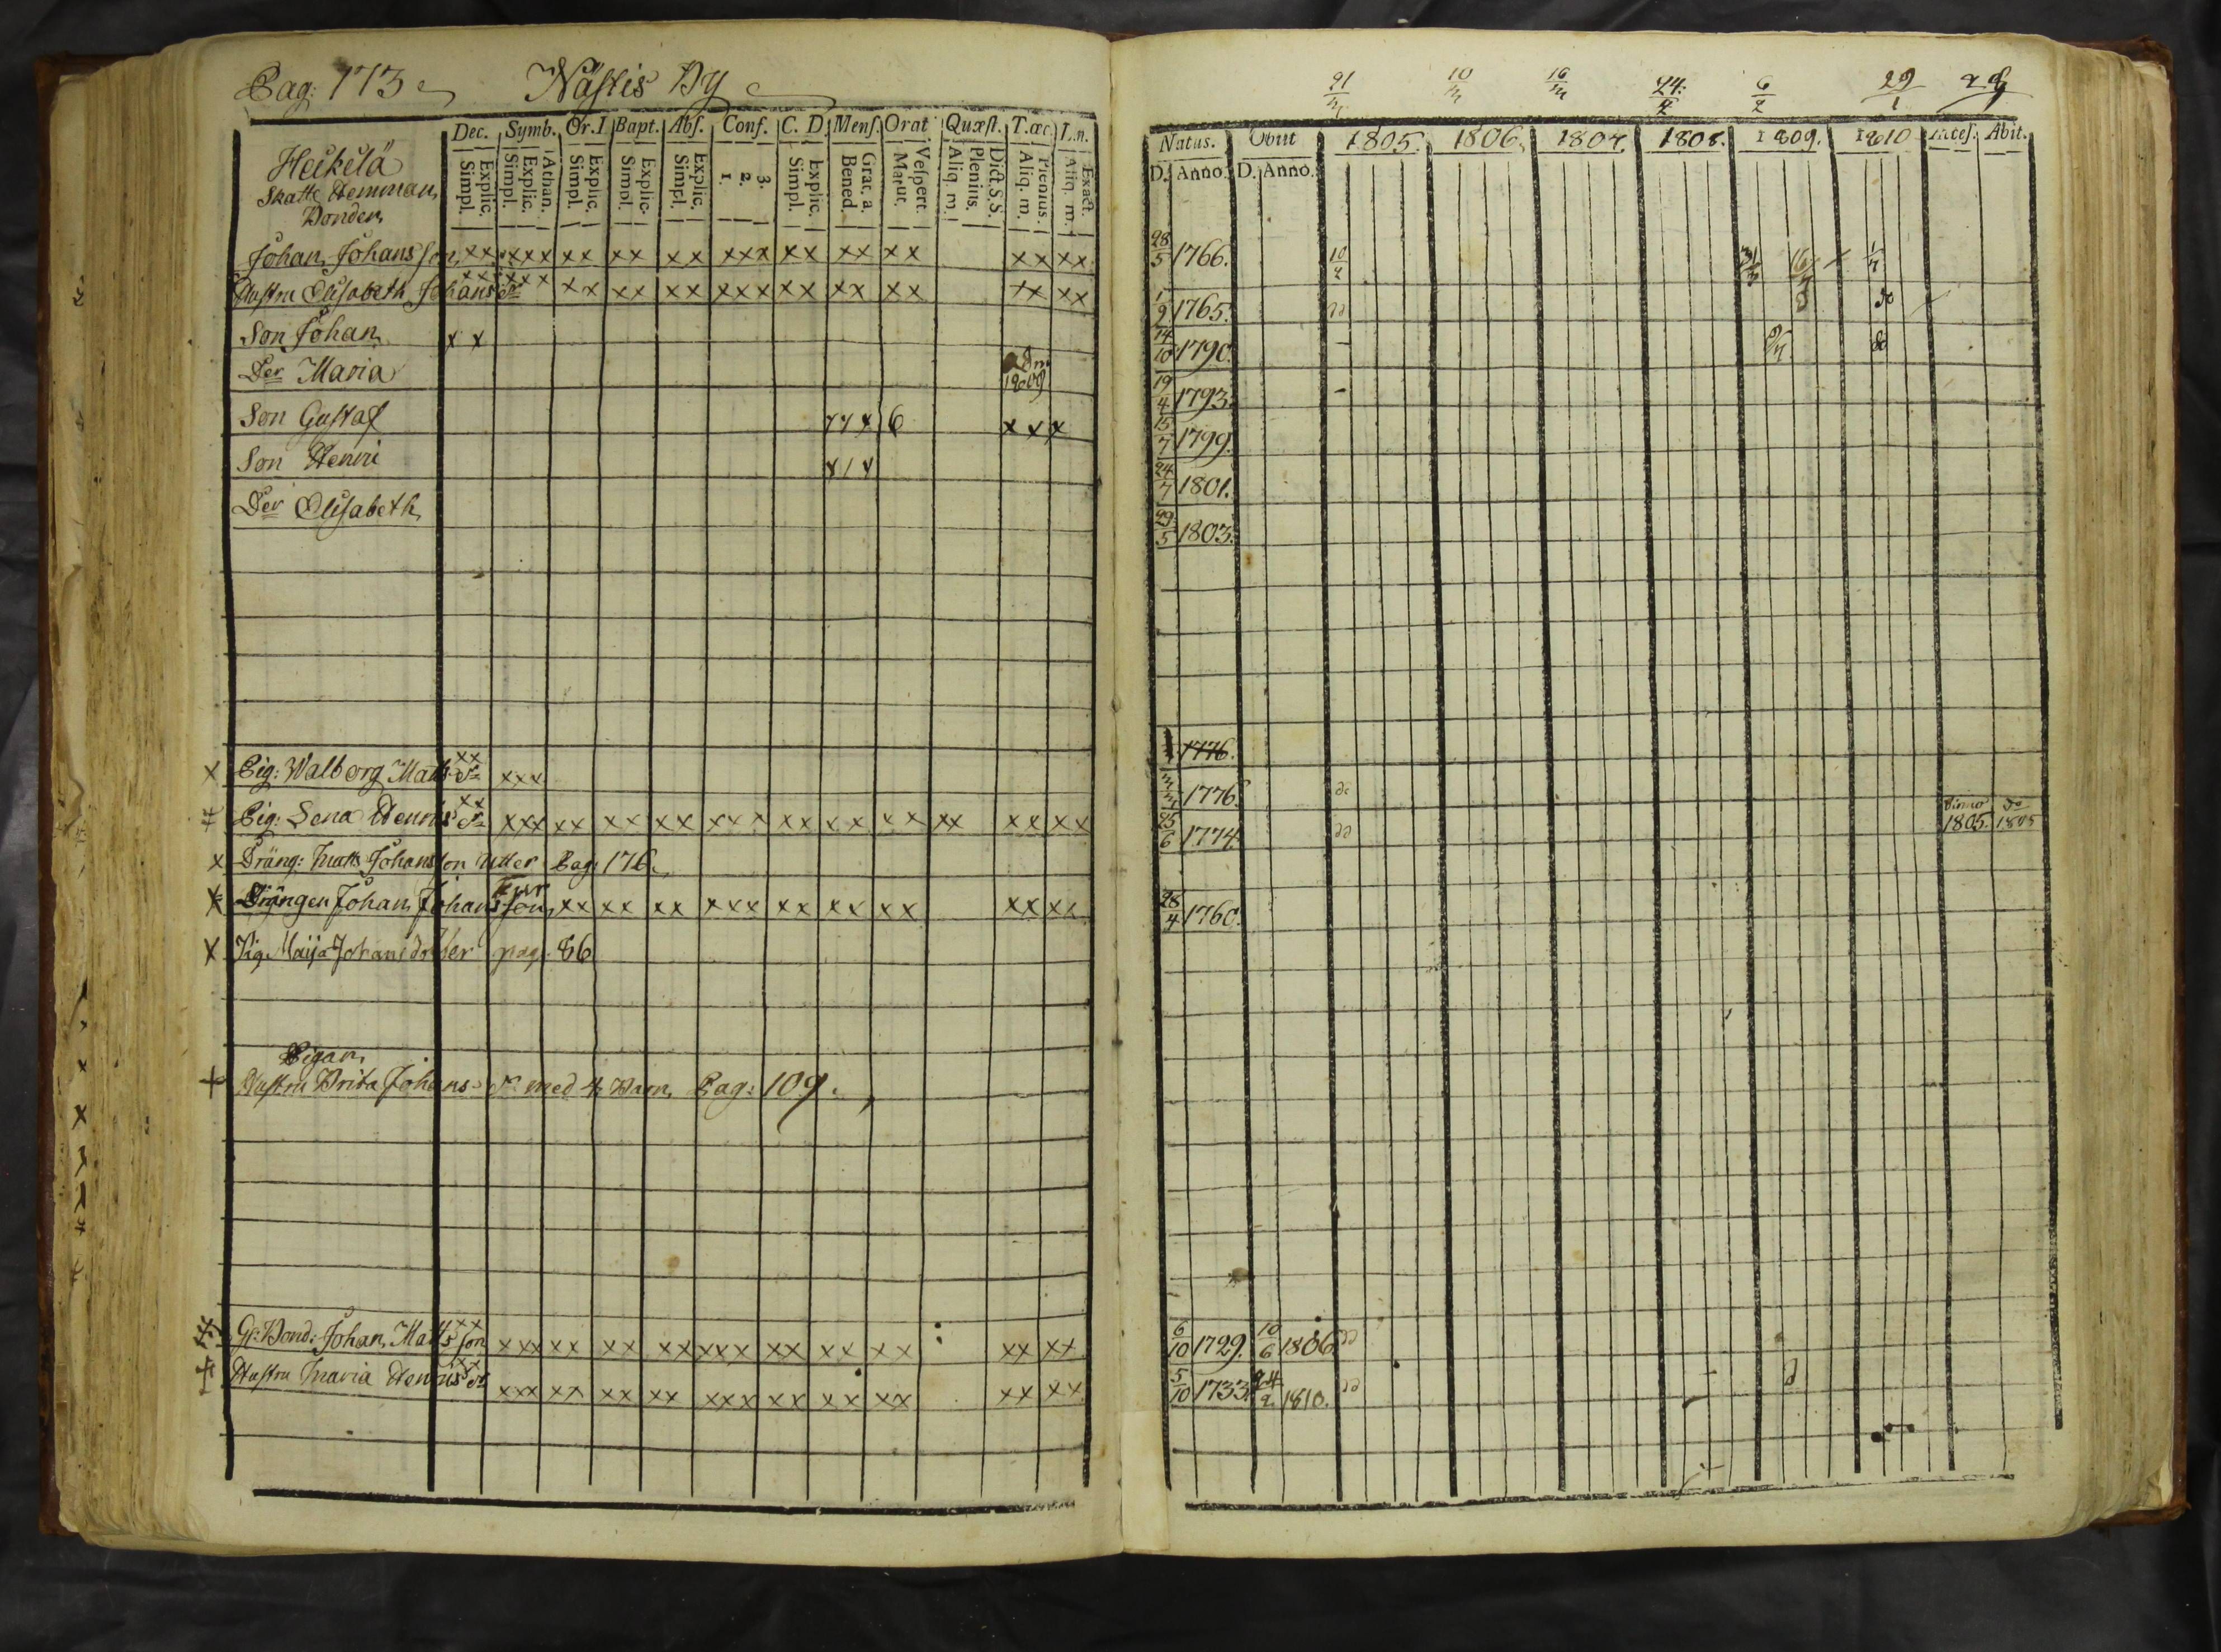 Pag: 173 Nästis By
Dec. Symb. Or.I Bapt. Abſ. Conf. C. D. Menſ. Orat Quæſt. T.œc. L.n.
Heikelä
Skatte Hemman,
Bonden
Simpl. Explic. Simpl. Explic. Athan. Simpl. Explic. Simpl. Explic. Simpl. Explic. 1. 2. 3. Simpl. Explic. Bened. Grat. a. Matut. Veſpert. Aliq. m. Plenius. Dict.S.S. Aliq. m. Plenius. Aliq. m. Exact.
Johan Johansson xx xxx xx xx xx xxx xx xx xx xx xx
Hustru Elisabeth Johans dr xx xxx xx xx xx xxx xx xx xx xx xx
Son Johan x x
Der Maria
1809
Son Gustaf 6 x x x
Son Henric
Der Elisabeth
x Pig: Walborg Matts dr xx xxx
Pig: Lena Henrics dr xx xxx xx xx xx xxx xx xx xx xx xx xx
x Dräng: Matts Johansson Utter Pag: 176
x Drängen Johan Johansson xx xx xx xxx xx xx xx xx xx
x Pig. Maija Johansdotter pag. 86
Pigan
Hustru Brita Johans dr med 4 Barn, Pag: 109.
Gl: Bond: Johan Matts son xx xxx xx xx xx xxx xx xx xx xx xx
Hustru Maria Henrics dr xx xxx xx xx xx xxx xx xx xx xx xx
21/3 10/3 16/3 24/2 6/2 29/1
Natus. Obiit 1805. 1806. 1807. 1808. 1809. 1810 Acceſ. Abit.
D. Anno. D. Anno.
28/5 1766.
1/9 1765.
14/10 1790.
19/4 1793.
15/7 1799.
24/7 1801.
29/5 1803.
1776.
1776.
25/6 1774. 1805. 1805
28/4 1760.
6/10 1729. 10/6 1806
5/10 1733. 24/2 1810.